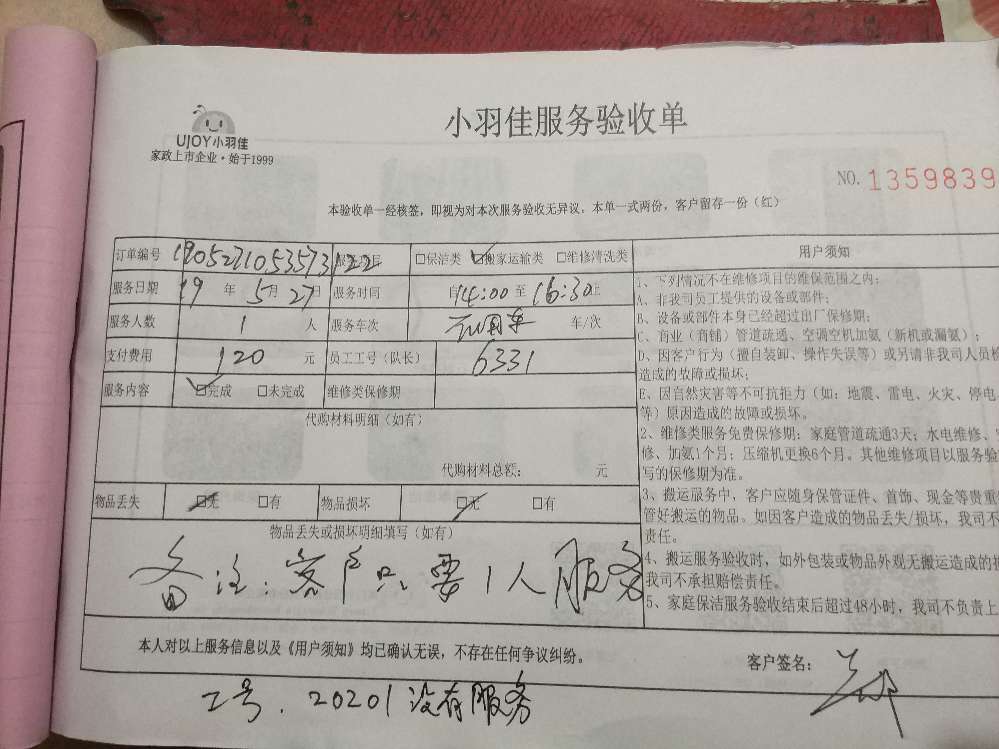 小羽佳服务验收单
UJOY小羽佳
家政上市企业·始于1999
NO. 1359839
本验收单一经核签，即视为对本次服务验收无异议。本单一式两份，客户留存一份（红）
订单编号 190527105357322 □保洁类 ☑搬家运输类 □维修清洗类
服务日期 19 年 5 月 27 日 服务时间 自 14:00 至 16:30 止
服务人数 1 人 服务车次 不用车 车/次
支付费用 120 元 员工工号（队长） 6331
服务内容 ☑完成 □未完成 维修类保修期
代购材料明细（如有）
代购材料总额： 元
物品丢失 ☑无 □有 物品损坏 ☑无 □有
物品丢失或损坏明细填写（如有）
备注：客户只要1人服务
用户须知
1、下列情况不在维修项目的维保范围之内：
A、非我司员工提供的设备或部件；
B、设备或部件本身已经超过出厂保修期；
C、商业（商铺）管道疏通、空调空机加氨（新机或漏氨）；
D、因客户行为（擅自装卸、操作失误等）或另请非我司人员检
造成的故障或损坏；
E、因自然灾害等不可抗拒力（如：地震、雷电、火灾、停电
等）原因造成的故障或损坏。
2、维修类服务免费保修期：家庭管道疏通3天；水电维修、
修、加氨1个月；压缩机更换6个月。其他维修项目以服务验
写的保修期为准。
3、搬运服务中，客户应随身保管证件、首饰、现金等贵重
管好搬运的物品。如因客户造成的物品丢失/损坏，我司不
责任。
4、搬运服务验收时，如外包装或物品外观无搬运造成的
我司不承担赔偿责任。
5、家庭保洁服务验收结束后超过48小时，我司不负责上
本人对以上服务信息以及《用户须知》均已确认无误，不存在任何争议纠纷。
客户签名：
工号．20201没有服务